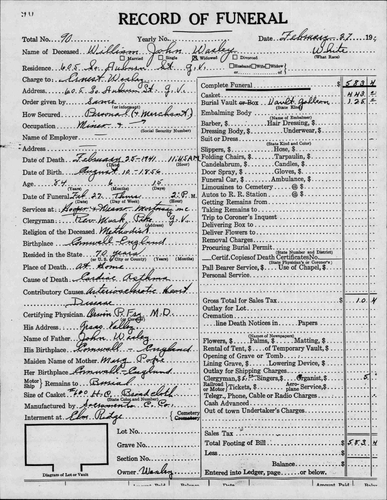 RECORD OF FUNERAL
Total No. 90 Yearly No. Date February 27 19
Name of Deceased William John Wasley White
Married Single Widowed Divorced (What Race)
Residence 605 So. Auburn St. G.V. Husband Wife of
Charge to Ernest Wasley
Address 605 So. Auburn St. G.V.
Order given by Same
How Secured Personal (& Merchant)
Occupation Miner (Social Security Number)
Name of Employer
Address
Date of Death February 25-1941. 11:45 AM
Date of Birth August 10-1856
Age 84 6 15
Date of Funeral Feb 27 Thurs 2 P.M.
Services at
Clergyman Rev. Mark G.V.
Religion of the Deceased Methodist
Birthplace Cornwall-England
Resided in the State 70 years
Place of Death At Home
Cause of Death Cardiac Asthma
Contributory Causes Arteriosclerotic Heart
Disease
Certifying Physician M.D.
His Address Grass Valley
Name of Father John Wasley
His Birthplace Cornwall - England
Maiden Name of Mother Mary Pope
Her Birthplace Cornwall-England
Motor Ship Remains to Burial
Size of Casket Broadcloth
Manufactured by Sacramento C. Co.
Interment at Elm Ridge Cemetery
Lot No.
Grave No.
Section No.
Owner Wasley
Diagram of Lot or Vault
Complete Funeral $ 583 4
Casket 448 2
Burial Vault or Box Vault 125 2
(State Kind)
Embalming Body
(Name of Embalmer)
Barber, $ Hair Dressing, $
Dressing Body, $ Underwear, $
Suit or Dress
(State Kind and Color)
Slippers, $ Hose, $
Folding Chairs, $ Tarpaulin, $
Candelabrum, $ Candles, $
Door Spray, $ Gloves, $
Funeral Car, $ Ambulance, $
Limousines to Cemetery @ $
Autos to R. R. Station @ $
Getting Remains from
Taking Remains to
Trip to Coroner's Inquest
Delivering Box to
Deliver Flowers to
Removal Charges
Procuring Burial Permit
(State Number and District)
Certif. Copies of Death Certificates No.
Pall Bearer Service, $ Use of Chapel, $
Personal Service
Gross Total for Sales Tax $ 10 4
Outlay for Lot
Cremation
line Death Notices in Papers
(Names of Newspapers)
Flowers, $ Palms, $ Matting, $
Rental of Tent, $ of Temporary Vault, $
Opening of Grave or Tomb
Lining Grave, $ Lowering Device, $
Outlay for Escort
Clergyman, $5. Singers, $ Organist, $ 5
Railroad or Motor Tickets, $ Aeroplane Service, $
Telegr., Phone, Cable or Radio Charges
Cash Advanced
Out of town Undertaker's Charges
Sales Tax
Total Footing of Bill $ 583 4
Less
Balance $
Entered into Ledger, page or below.